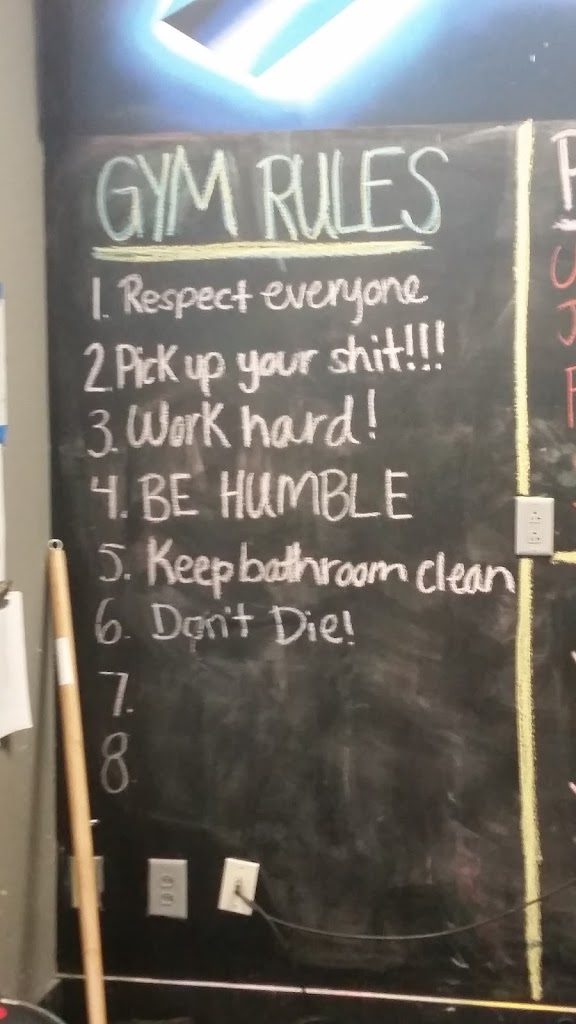 GYM RULES
1. Respect everyone
2. Pick up your shit!!!
3. Work hard!
4. BE HUMBLE
5. Keep bathroom clean
6. Don't Die!
7.
8